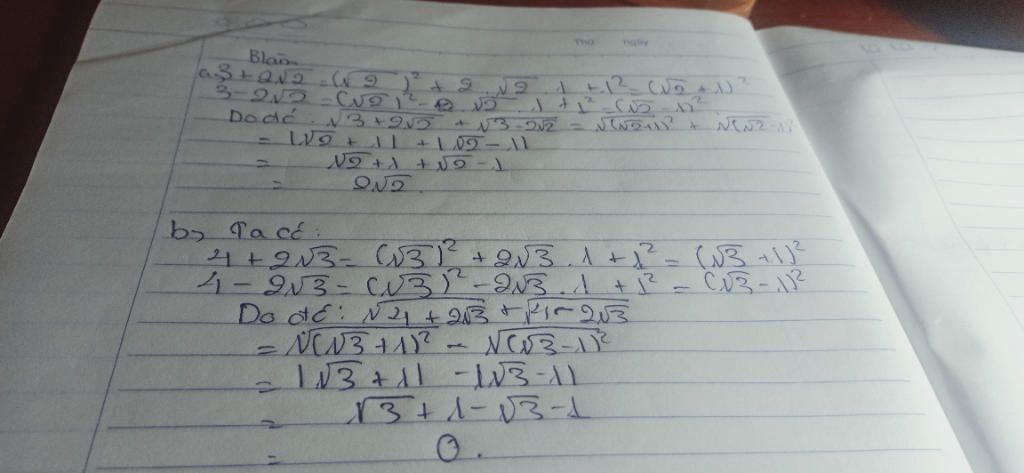 Thứ ngày
Blàm
a. 3 + 2√2 = (√2)² + 2 . √2 . 1 + 1² = (√2 + 1)²
3 - 2√2 = (√2)² - 2 . √2 . 1 + 1² = (√2 - 1)²
Do đó : √3 + 2√2 + √3 - 2√2 = √(√2+1)² + √(√2-1)²
= |√2 + 1| + |√2 - 1|
= √2 + 1 + √2 - 1
= 2√2.
b, Ta có :
4 + 2√3 = (√3)² + 2√3 . 1 + 1² = (√3 + 1)²
4 - 2√3 = (√3)² - 2√3 . 1 + 1² = (√3 - 1)²
Do đó : √4 + 2√3 + √4 - 2√3
= √(√3 + 1)² - √(√3 - 1)²
= |√3 + 1| - |√3 - 1|
= √3 + 1 - √3 - 1
= 0.